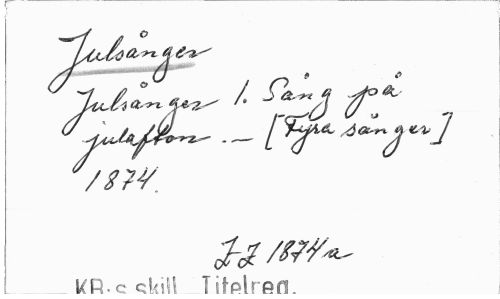 Julsånger
Julsånger 1. Sång på
julafton. – [Fyra sånger]
1874.
ZZ 1874 a
KB:s skill. Titelreg.